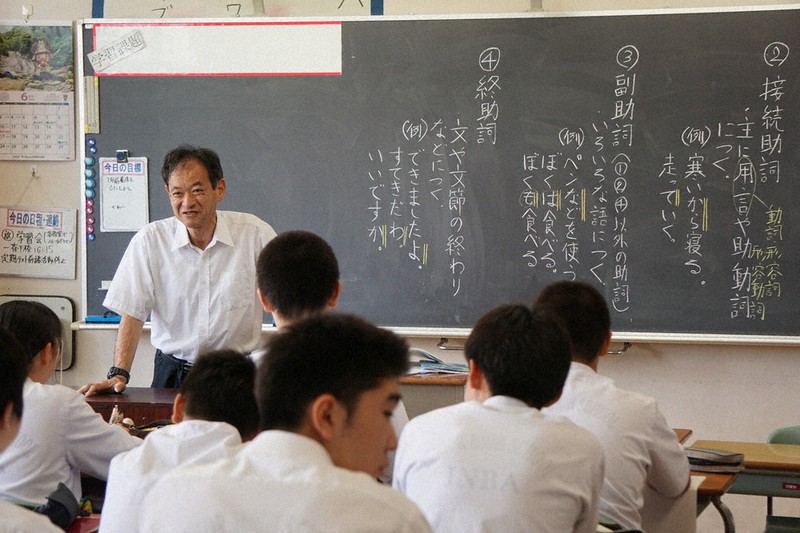 学習課題
② 接続助詞
主に用言や助動詞
につく。
動詞
形容詞
形容動詞
(例) 寒いから寝る。
走っていく。
③ 副助詞 (①②④以外の助詞)
いろいろな語につく。
(例) ペンなどを使う
ぼくは食べる。
ぼくも食べる
④ 終助詞
文や文節の終わり
などにつく。
(例) できましたよ。
すてきだわ
いいですか。
今日の目標
今日の日程・連絡
学習会
6
INBA